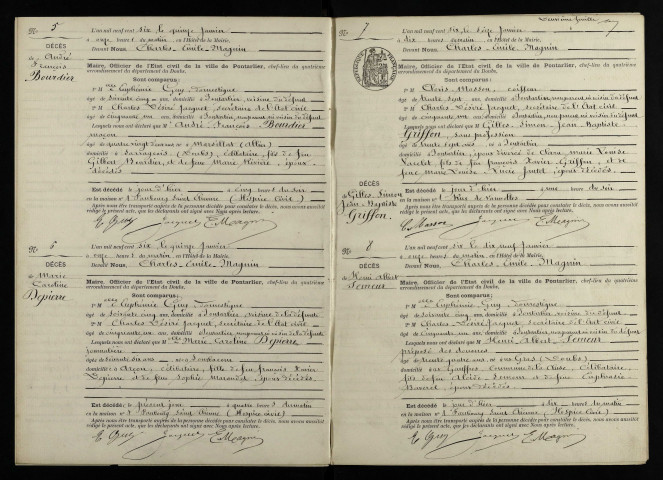 No 5
DÉCÈS
de André
François
Bourdier
L'an mil neuf cent six le quinze Janvier
à onze heures du matin, en l'Hôtel de la Mairie.
Devant Nous, Charles Emile Magnin
Maire, Officier de l'Etat civil de la ville de Pontarlier, chef-lieu du quatrième
arrondissement du département du Doubs.
Sont comparus:
1° Mlle Euphémie Guy Domestique
âgée de Soixante cinq ans, domicilié à Pontarlier, voisine du défunt
2° M Charles Désiré Jacquet, secrétaire de l'Etat civil
âgé de cinquante ans, domicilié à Pontarlier, non parent ni voisin du défunt
Lesquels nous ont déclaré que M. André François Bourdier
maçon
âgé de quatre vingt deux ans né à Marsillat (Allier)
domicilié à (Doubs), célibataire, fils de feu
Gilbert Bourdier, et de feue Marie époux
décédés
Est décédé le jour d'hier à cinq heures du soir
en la maison n° 1 Faubourg Saint Etienne (Hospice Civil)
Après nous être transporté auprès de la personne décédée pour constater le décès, nous avons aussitôt
rédigé le présent acte, que les déclarants ont signé avec Nous après lecture.
E Guy Jacquet E Magnin
No 6
DÉCÈS
de Marie
Caroline
Dépierre
L'an mil neuf cent six, le quinze Janvier
à onze heures du matin, en l'Hôtel de la Mairie.
Devant Nous, Charles Emile Magnin
Maire, Officier de l'Etat civil de la ville de Pontarlier, chef-lieu du quatrième
arrondissement du département du Doubs.
Sont comparus:
1° Mlle Euphémie Guy Domestique
âgée de Soixante cinq ans, domicilié à Pontarlier, voisine de la défunte
2° M Charles Désiré Jacquet, secrétaire de l'Etat civil
âgé de cinquante ans, domicilié à Pontarlier, non parent ni voisin de la défunte
Lesquels nous ont déclaré que Mlle Marie Caroline Dépierre
Journalière
âgée de Soixante six ans née à
domiciliée à Arçon, célibataire, fille de feu François Xavier
Dépierre et de feue Sophie époux décédés
Est décédée le présent jour à quatre heures du matin
en la maison n° 1 Faubourg Saint Etienne (Hospice civil)
Après nous être transporté auprès de la personne décédée pour constater le décès, nous avons aussitôt
rédigé le présent acte, que les déclarants ont signé avec Nous après lecture.
E Guy Jacquet E Magnin
Deuxième feuille
No 7
DÉCÈS
de Gilles Simon
Jean Baptiste
Griffon
L'an mil neuf cent six le seize Janvier
à dix heures du matin, en l'Hôtel de la Mairie.
Devant Nous, Charles Emile Magnin
Maire, Officier de l'Etat civil de la ville de Pontarlier, chef-lieu du quatrième
arrondissement du département du Doubs.
Sont comparus:
1° M Masson, coiffeur
âgé de trente ans, domicilié à Pontarlier, non parent ni voisin du défunt
2° M Charles Désiré Jacquet, secrétaire de l'Etat civil
âgé de cinquante ans, domicilié à Pontarlier, non parent ni voisin du défunt
Lesquels nous ont déclaré que M. Gilles Simon Jean Baptiste
Griffon, sans profession
né à Pontarlier
domicilié à Pontarlier, époux de Marie Louise
fils de feu François Xavier Griffon, et de
feue Marie Louise époux décédés
Est décédé le jour d'hier à heures du soir
en la maison n° Rue de Vannolles
Après nous être transporté auprès de la personne décédée pour constater le décès, nous avons aussitôt
rédigé le présent acte, que les déclarants ont signé avec Nous après lecture.
Masson Jacquet E Magnin
No 8
DÉCÈS
de Henri Albert
L'an mil neuf cent six, le dix neuf Janvier
à onze heures du matin, en l'Hôtel de la Mairie.
Devant Nous, Charles Emile Magnin
Maire, Officier de l'Etat civil de la ville de Pontarlier, chef-lieu du quatrième
arrondissement du département du Doubs.
Sont comparus:
1° Mlle Euphémie Guy Domestique
âgée de Soixante cinq ans, domicilié à Pontarlier, voisine du défunt
2° M Charles Désiré Jacquet, secrétaire de l'Etat civil
âgé de Cinquante ans, domicilié à Pontarlier, non parent ni voisin du défunt
Lesquels nous ont déclaré que M. Henri Albert
préposé des douanes
âgé de trente quatre ans né aux Gras (Doubs)
domicilié aux Commune de la Cluse, Célibataire,
fils de feu et de feue Euphrasie
époux décédés
Est décédé le jour d'hier à dix heures du matin
en la maison n° 1 Faubourg Saint Etienne, (Hospice Civil)
Après nous être transporté auprès de la personne décédée pour constater le décès, nous avons aussitôt
rédigé le présent acte, que les déclarants ont signé avec Nous après lecture.
E Guy Jacquet E Magnin